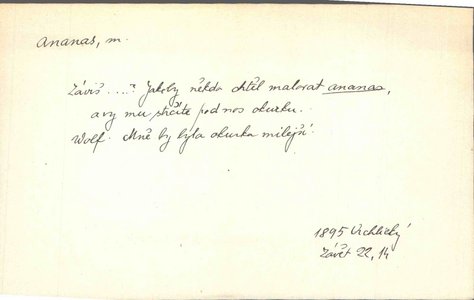 Ananas, m.
Záviš ....? Jakoby někdo chtěl malovat ananas,
a vy mu strčíte pod nos okurku.
Wolf. Mně by byla okurka milejší.
1895 Vrchlický
Závět 22, 14